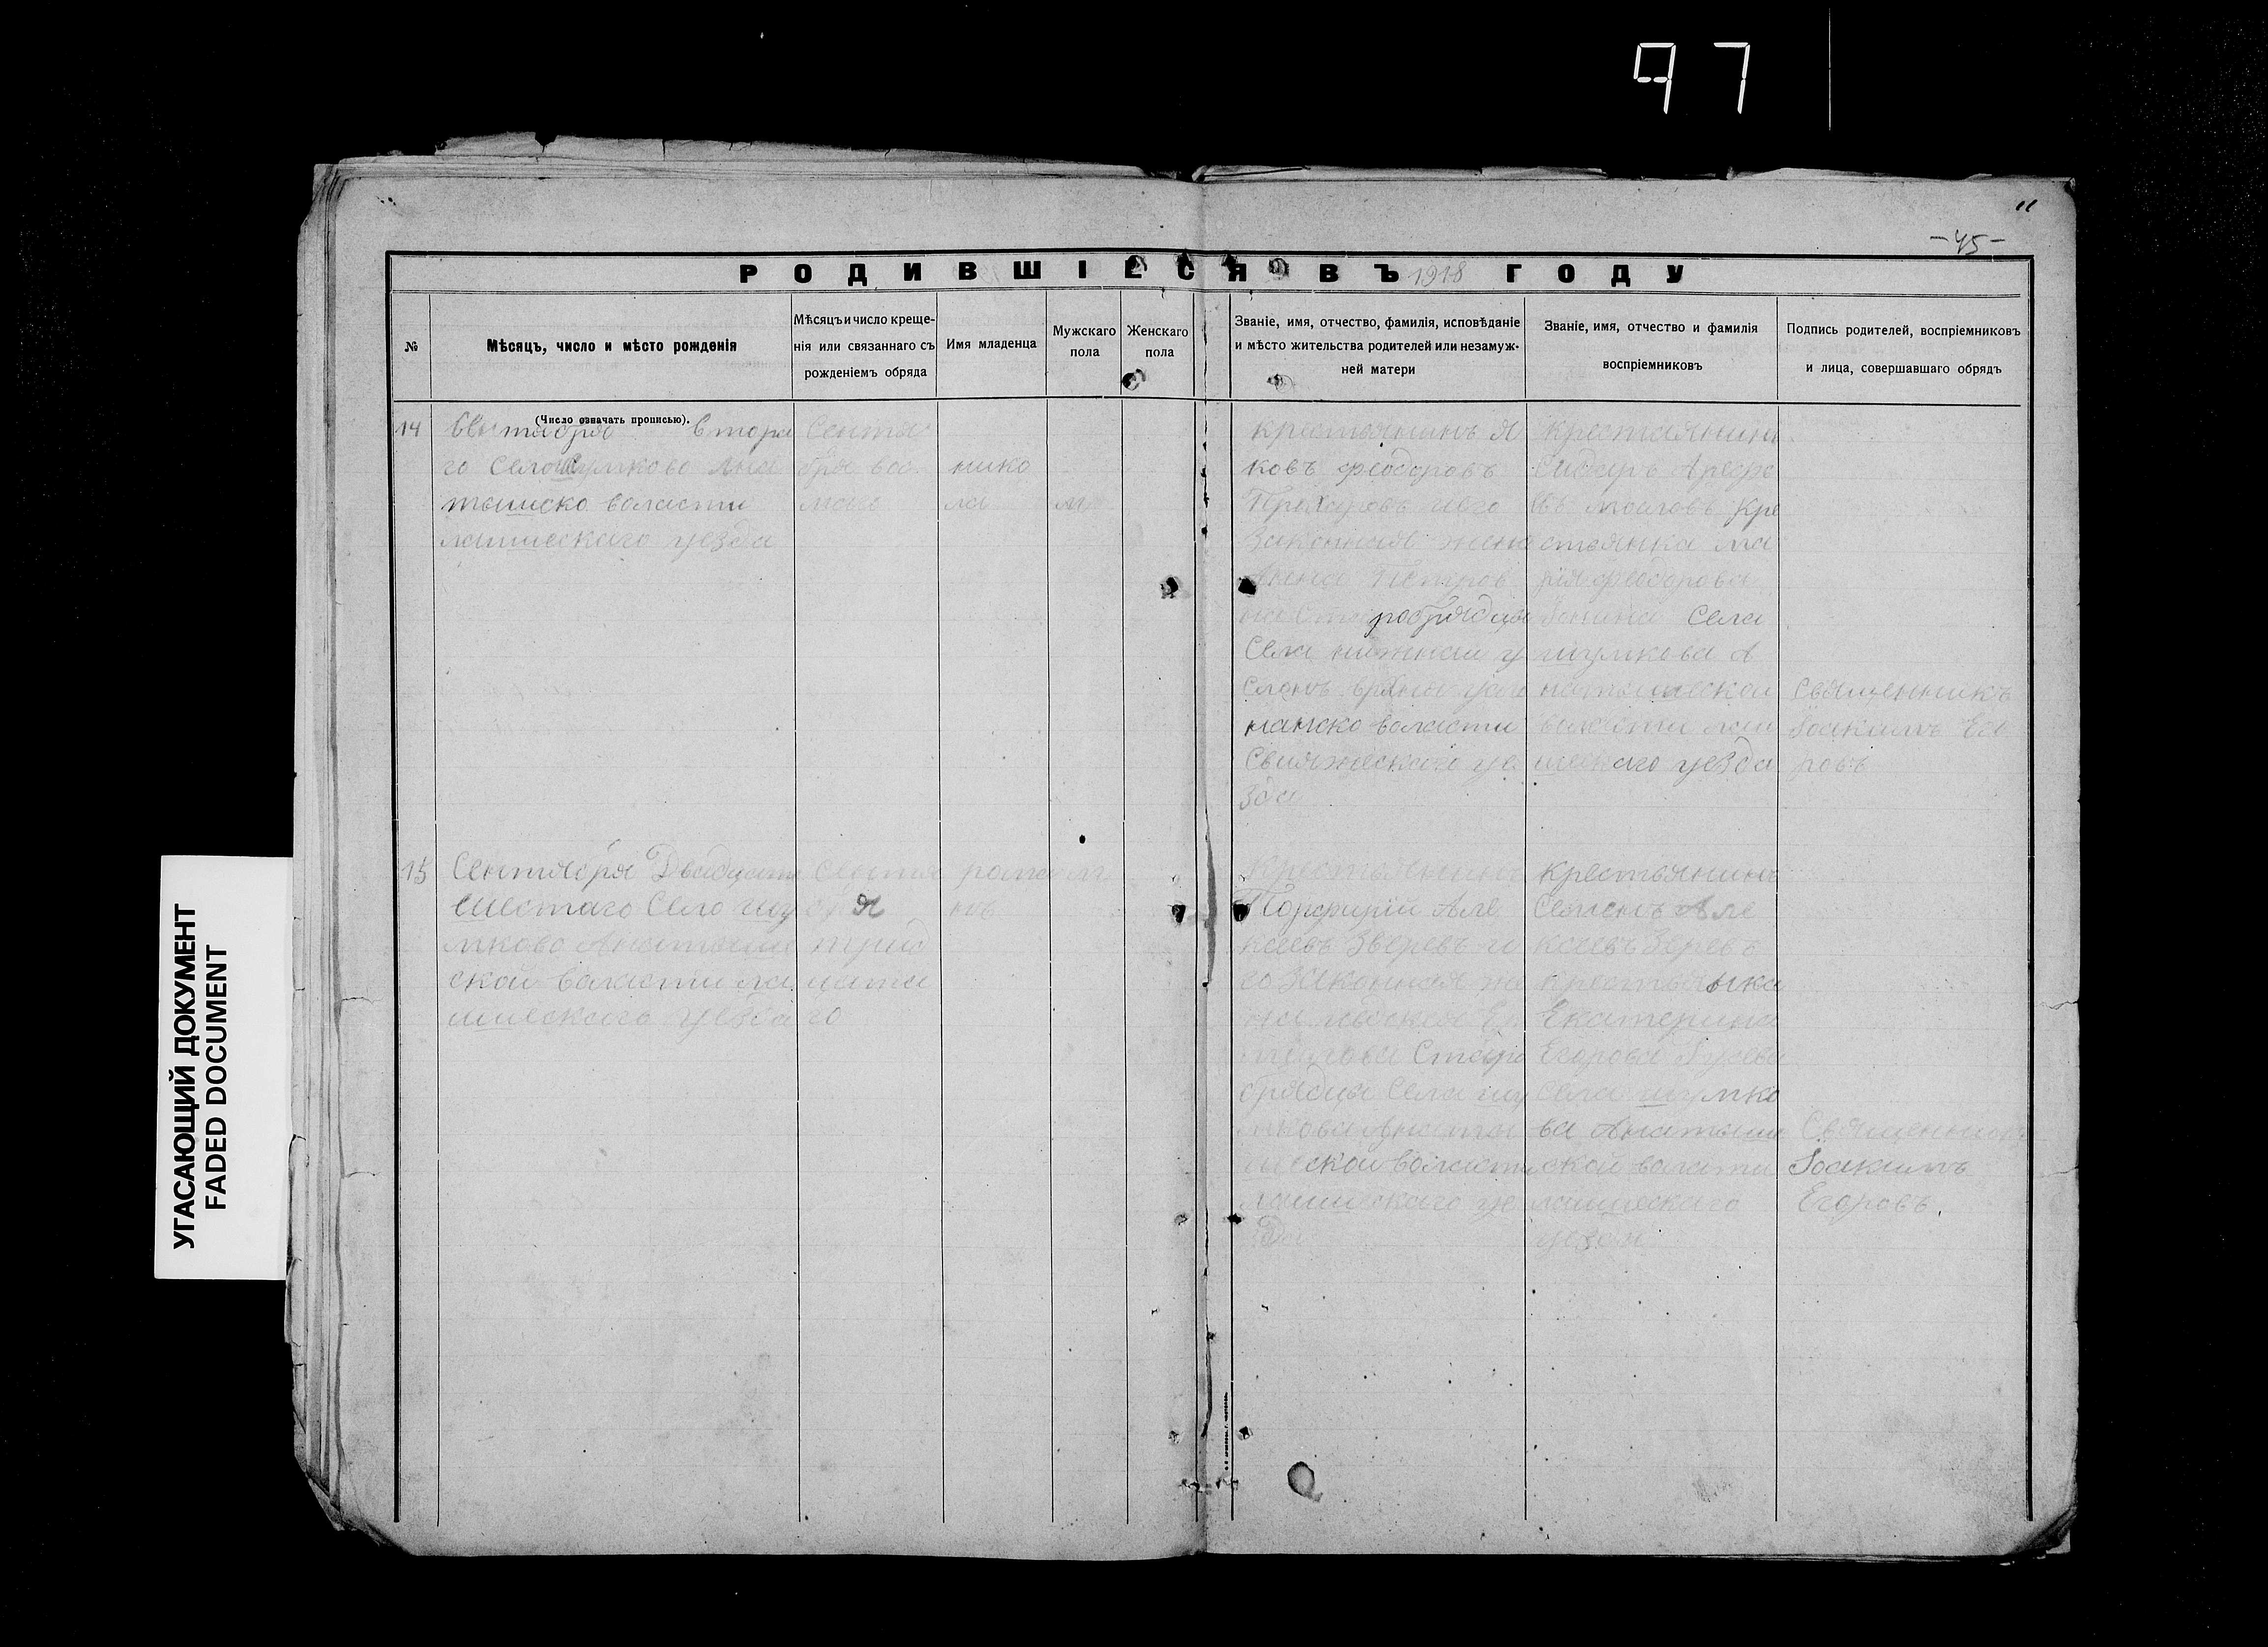 97
11
-45-
РОДИВШІЕСЯ ВЪ 1918 ГОДУ
№
Мѣсяцъ, число и мѣсто рожденія
Мѣсяцъ и число креще-
нія или связаннаго съ
рожденіемъ обряда
Имя младенца
Мужскаго
пола
Женскаго
пола
Званіе, имя, отчество, фамилія, исповѣданіе
и мѣсто жительства родителей или незамуж-
ней матери
Званіе, имя, отчество и фамилія
воспріемниковъ
Подпись родителей, воспріемниковъ
и лица, совершавшаго обрядъ
(Число означать прописью).
14
Сентября втора
го село Шумково
волости
лаишескаго уезда
Сентя
бря вос
маго
нико
лай
м
крестьянинъ Я
ковъ феодоровъ
Прохоровъ иего
Законная жена
Анна Петров
на старобрядцы
Села
волости
Свияжескаго уе
зда
крестиянинъ
моловъ кре
стьянка ма
рия феодорова
села
шумкова А
натышеской
волости лаи
шескаго уезда
Священникъ
Іоакимъ Его
ровъ
15
Сентября Двадцати
Шестаго Село шу
мково Анатыше
ской валасти лаи
шескаго уезда
Сентя
бря
трид
цата
го
рома
нъ
м
Крестьянинъ
Порфирій Але
ксеевъ Зверевъ и
го Законная же
на
Старо
брядцы Села шу
мкова Анаты
шеской валасти
лаишескаго уе
Да
Крестьянинъ
Семенъ Але
ксеевъ Зверевъ
крестьянка
Екатерина
Егорова
Села шумко
ва Анатыше
ской валасти
лаишескаго
уезда
Священникъ
Іоакимъ
Егоровъ.
УГАСАЮЩИЙ ДОКУМЕНТ
FADED DOCUMENT